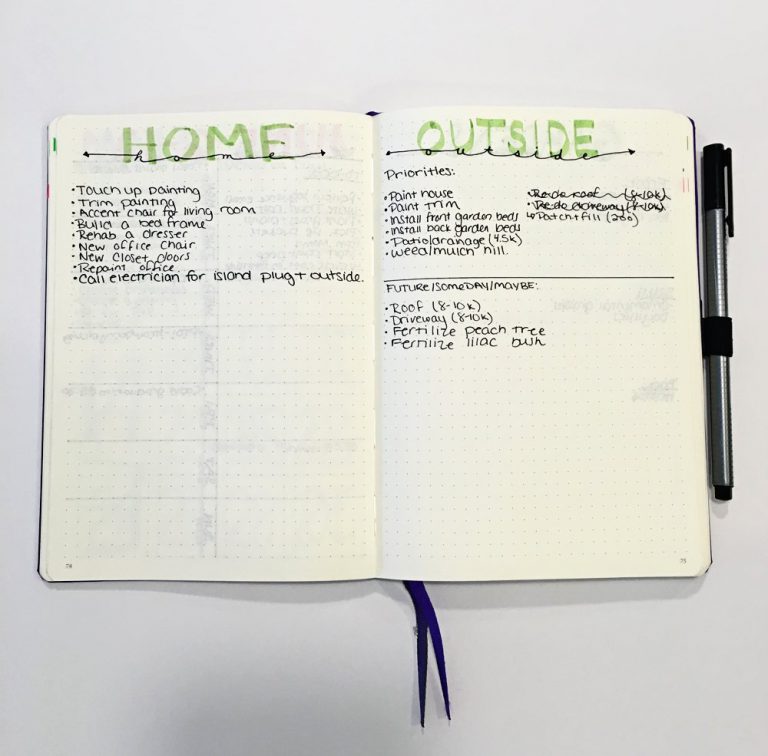 HOME
home
• Touch up painting
• Trim painting
• Accent chair for living room
• Build a bed frame
• Rehab a dresser
• New office chair
• New closet doors
• Repaint office.
• Call electrician for island plug + outside.
74
OUTSIDE
outside
Priorities:
• Paint house
• Paint trim
• Install front garden beds
• Install back garden beds
• Patio/drainage (4.5k)
• Weed/mulch hill.
• Re-do roof (8-10k)
• Re-do driveway (8-10k)
↳ Patch + fill (200)
FUTURE/SOMEDAY/MAYBE:
• Roof (8-10k)
• Driveway (8-10k)
• Fertilize peach tree
• Fertilize lilac bush
75